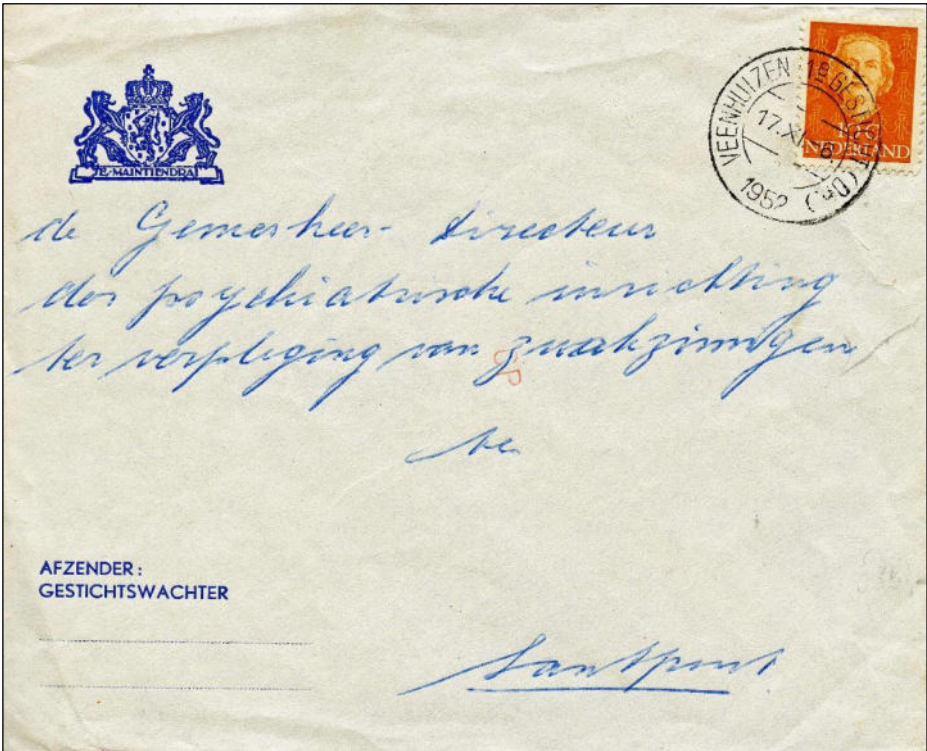 JE MAINTIENDRAI
VEENHUIZEN 1e GESTICHT (Dr)
17.XI
1952
NEDERLAND
de Geneesheer-Directeur
der psychiatrische inrichting
ter verpleging van zwakzinnigen
te
AFZENDER:
GESTICHTSWACHTER
Santpoort